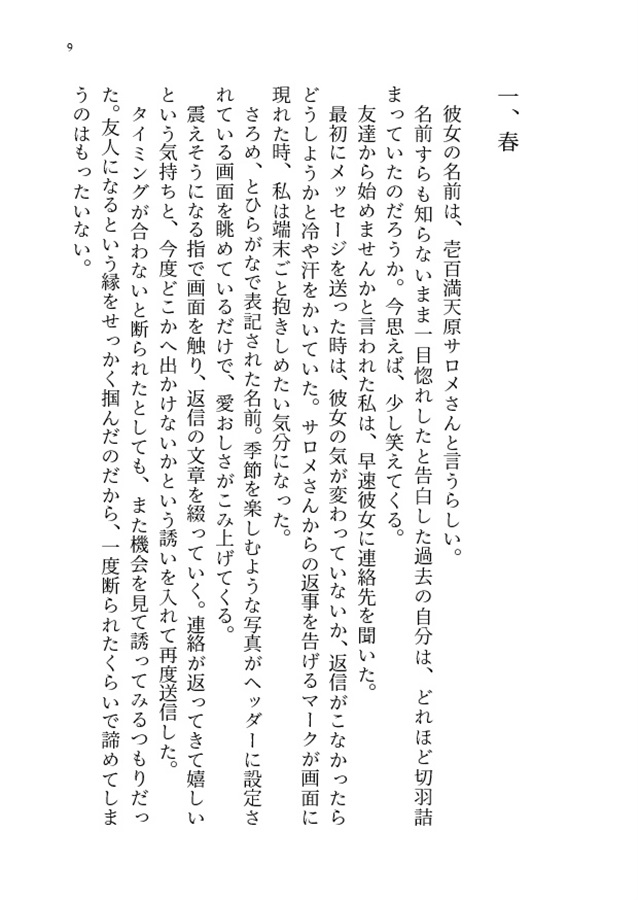 9
一、春
彼女の名前は、壱百満天原サロメさんと言うらしい。
名前すらも知らないまま一目惚れしたと告白した過去の自分は、どれほど切羽詰
まっていたのだろうか。今思えば、少し笑えてくる。
友達から始めませんかと言われた私は、早速彼女に連絡先を聞いた。
最初にメッセージを送った時は、彼女の気が変わっていないか、返信がこなかったら
どうしようかと冷や汗をかいていた。サロメさんからの返事を告げるマークが画面に
現れた時、私は端末ごと抱きしめたい気分になった。
さろめ、とひらがなで表記された名前。季節を楽しむような写真がヘッダーに設定さ
れている画面を眺めているだけで、愛おしさがこみ上げてくる。
震えそうになる指で画面を触り、返信の文章を綴っていく。連絡が返ってきて嬉しい
という気持ちと、今度どこかへ出かけないかという誘いを入れて再度送信した。
タイミングが合わないと断られたとしても、また機会を見て誘ってみるつもりだっ
た。友人になるという縁をせっかく掴んだのだから、一度断られたくらいで諦めてしま
うのはもったいない。